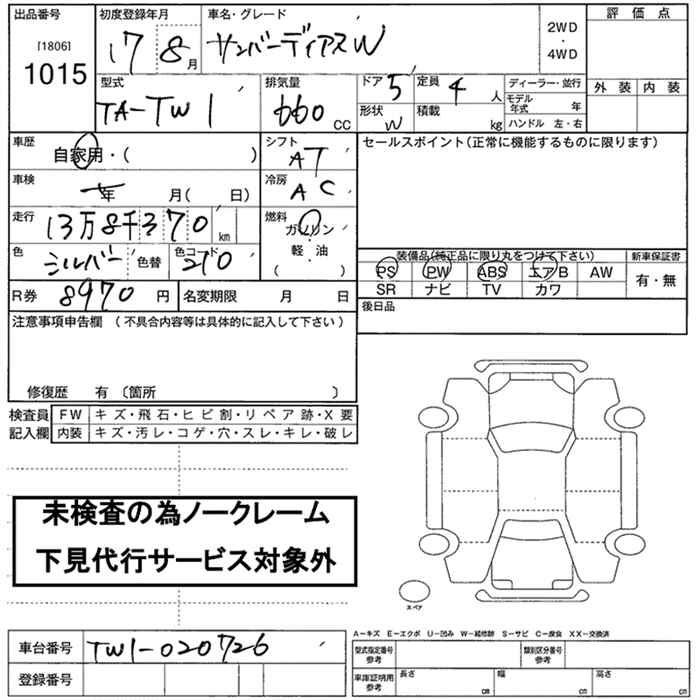 出品番号
[1806]
1015
初度登録年月
17 8 月
車名・グレード
サンバーディアスW
2WD
・
4WD
評価点
外装 内装
型式
TA-TW1
排気量
660 CC
ドア 5
定員 4 人
形状 W
積載 kg
ディーラー・並行
モデル年式 年
ハンドル 左・右
車歴
自家用・( )
シフト
AT
セールスポイント(正常に機能するものに限ります)
車検
年 月( 日)
冷房
AC
走行
13万8千370 km
燃料
ガソリン
・
軽・油
( )
色
シルバー 色替
色コード
210
装備品(純正品に限り丸をつけて下さい)
新車保証書
PS PW ABS エアB AW
SR ナビ TV カワ
有・無
R券 8970 円
名変期限 月 日
後日品
注意事項申告欄 (不具合内容等は具体的に記入して下さい)
修復歴 有 〔箇所 〕
検査員 FW キズ・飛石・ヒビ割・リペア跡・X要
記入欄 内装 キズ・汚レ・コゲ・穴・スレ・キレ・破レ
未検査の為ノークレーム
下見代行サービス対象外
スペア
A－キズ E－エクボ U－凹み W－補修跡 S－サビ C－腐食 XX－交換済
車台番号 TW1-020726
登録番号
型式指定番号
参考
類別区分番号
参考
車庫証明用
参考
長さ cm
幅 cm
高さ cm